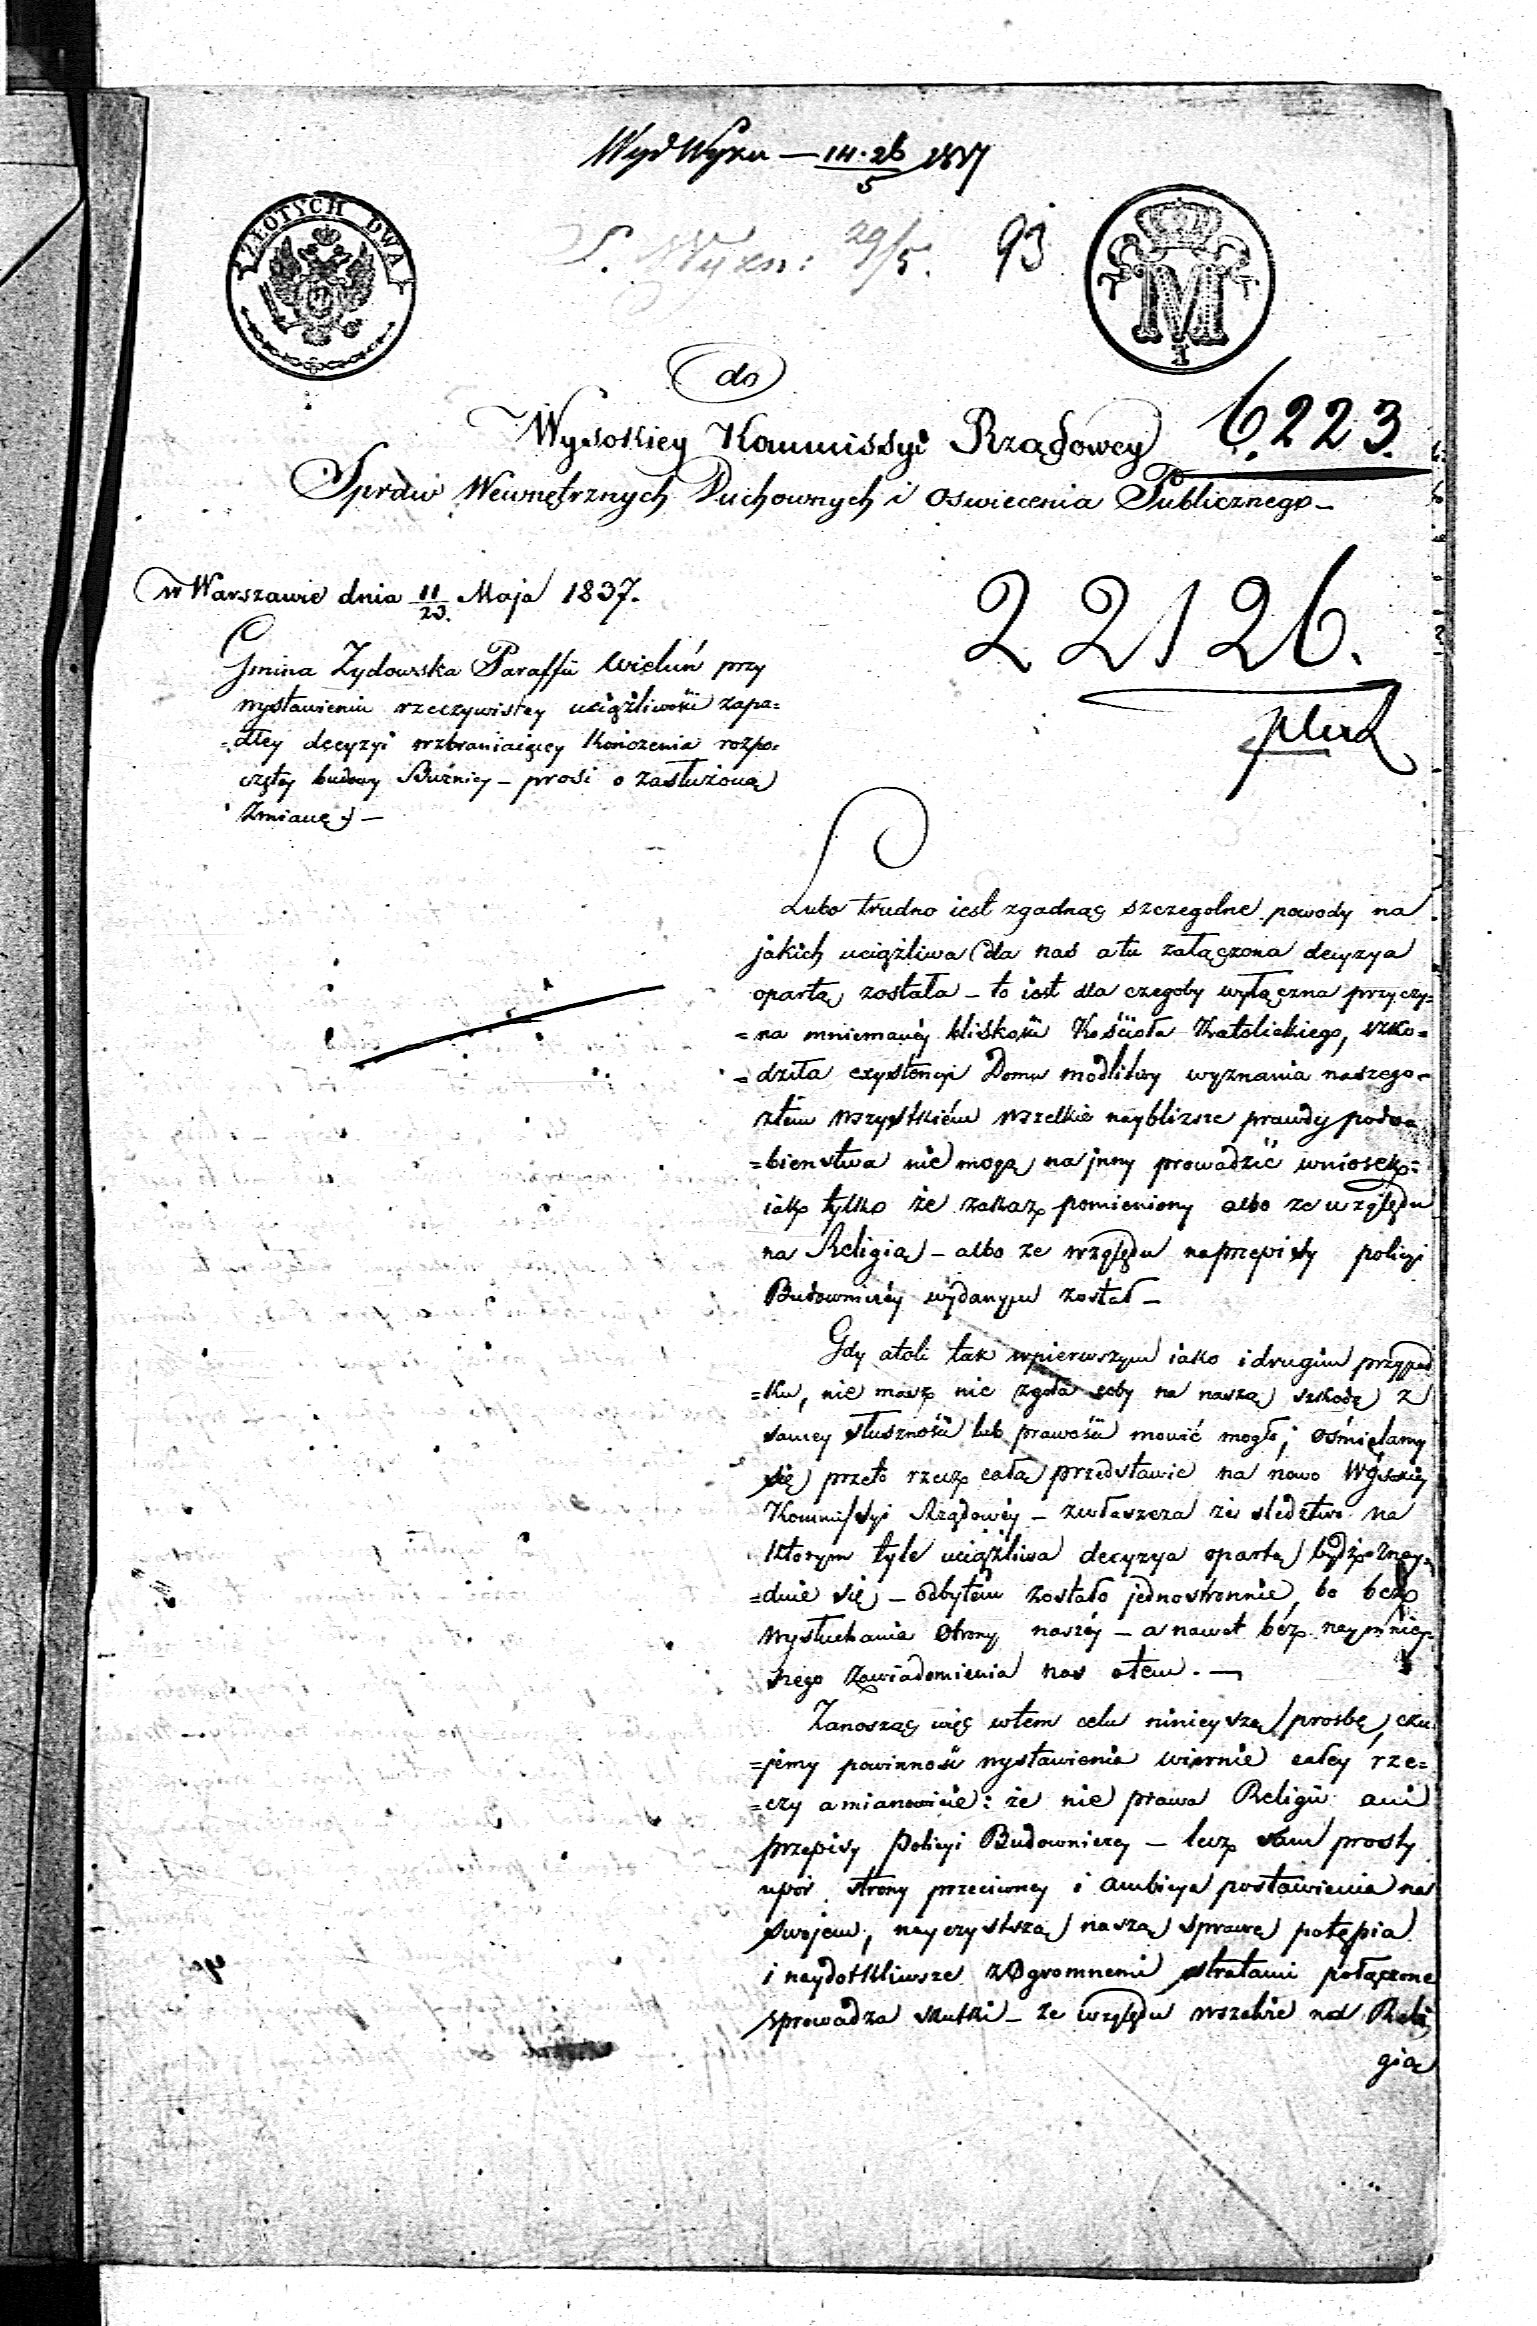 Wyd Wyzn — 14.26/5 1837
S. Wyzn: 29/5. 93
ZŁOTYCH DWA
M
I
do
Wysokiey Kommissyi Rządowey 6223.
Spraw Wewnętrznych Duchownych i oswiecenia Publicznego_
22126.
w Warszawie dnia 11/23. Maja 1837.
Gmina Zydowska Paraffii Wieluń przy
wystawieniu rzeczywistey uciążliwości zapa=
=dłey decyzyi wzbraniaiącey kończenia rozpo=
częłey budowy Bużnicy – prosi o zasłużoną
Zmianę. –
Lubo trudno iest zgadnąć szczegolne powody na
jakich uciążliwa dla nas a tu załączona decyzya
opartą została – to iest dla czegoby wyłączna przyczy=
=na mniemanéy bliskości Kościoła Katolickiego, szko=
=dziła exystencyi Domu modlitwy wyznania naszego–
ztem wszystkiém wszelkie naybliższe prawdy podo=
=bienstwa nie mogą na jnny prowadzić wniosek:
iak tylko że zakaz pomieniony albo ze względu
na Religią – albo ze względu na przepisy policyi
Budowniczéy wydanym został –
Gdy atoli tak wpierwszym iako i drugim przypad
=ku, nie masz nic zgoła coby na naszą szkodę z
samey słuszności lub prawości mowić mogło; ośmielamy
się przeto rzecz całą przedstawić na nowo Wysokiey
Kommissyi Rządowéy – zwłaszcza że sledztwo na
ktorym tyle uciążliwa decyzya opartą bydź znay=
=duie się – odbytém zostało jednostronnie, bo bez
wysłuchania strony naszéy – a nawet bez naymniey=
szego zawiadomienia nas otem. —
Zanosząc więc wtem celu ninieyszą prosbę, czu
=jemy powinność wystawienia wiernie całey rze=
=czy a mianowicie: że nie prawa Religii ani
przepisy Policyi Budowniczey – lecz sam prosty
upór strony przeciwney i ambicya postawienia na
swojem, nayczystszą naszą sprawę potępia
i naydotkliwsze z Ogromnemi stratami połączone
sprowadza skutki – ze względu wszelkie na Reli
gią